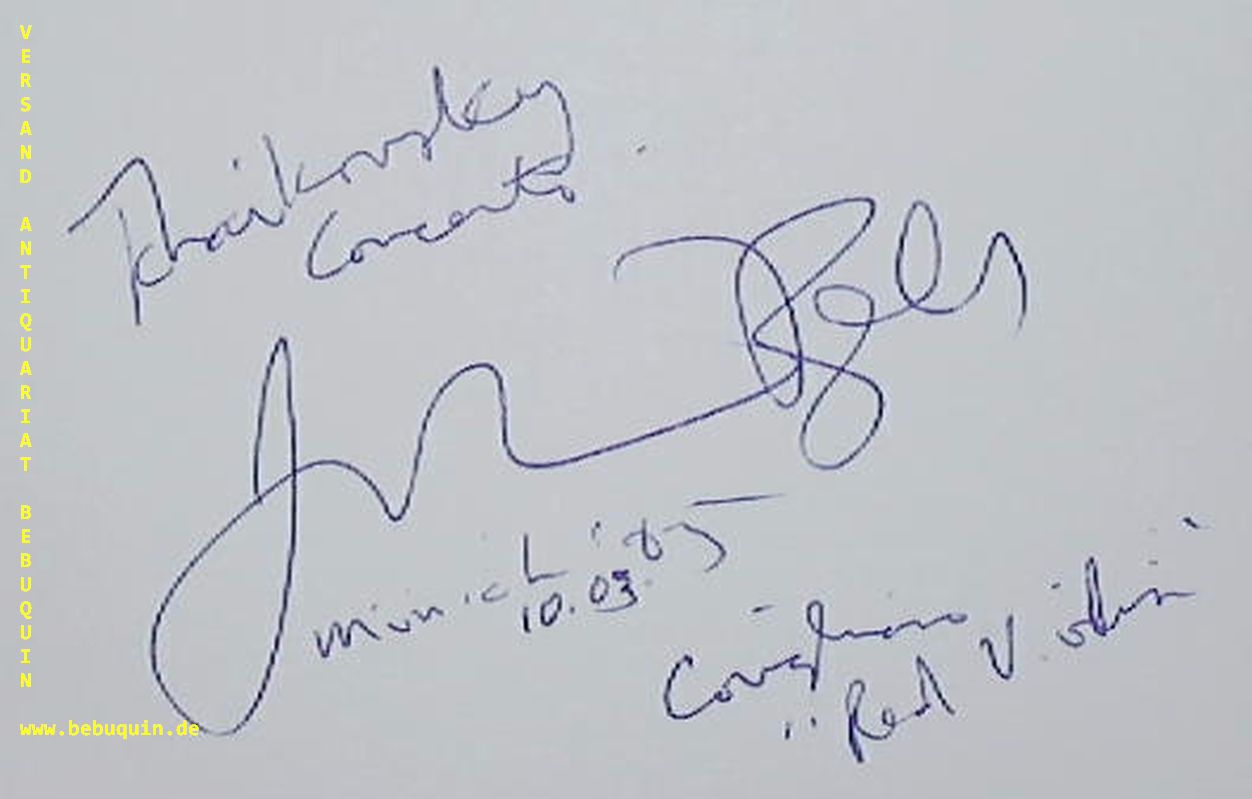 VERSAND ANTIQUARIAT BEBUQUIN
www.bebuquin.de
Tchaikovsky
Concerto
Munich '05
10.03.
Corigliano
"Red Violin"